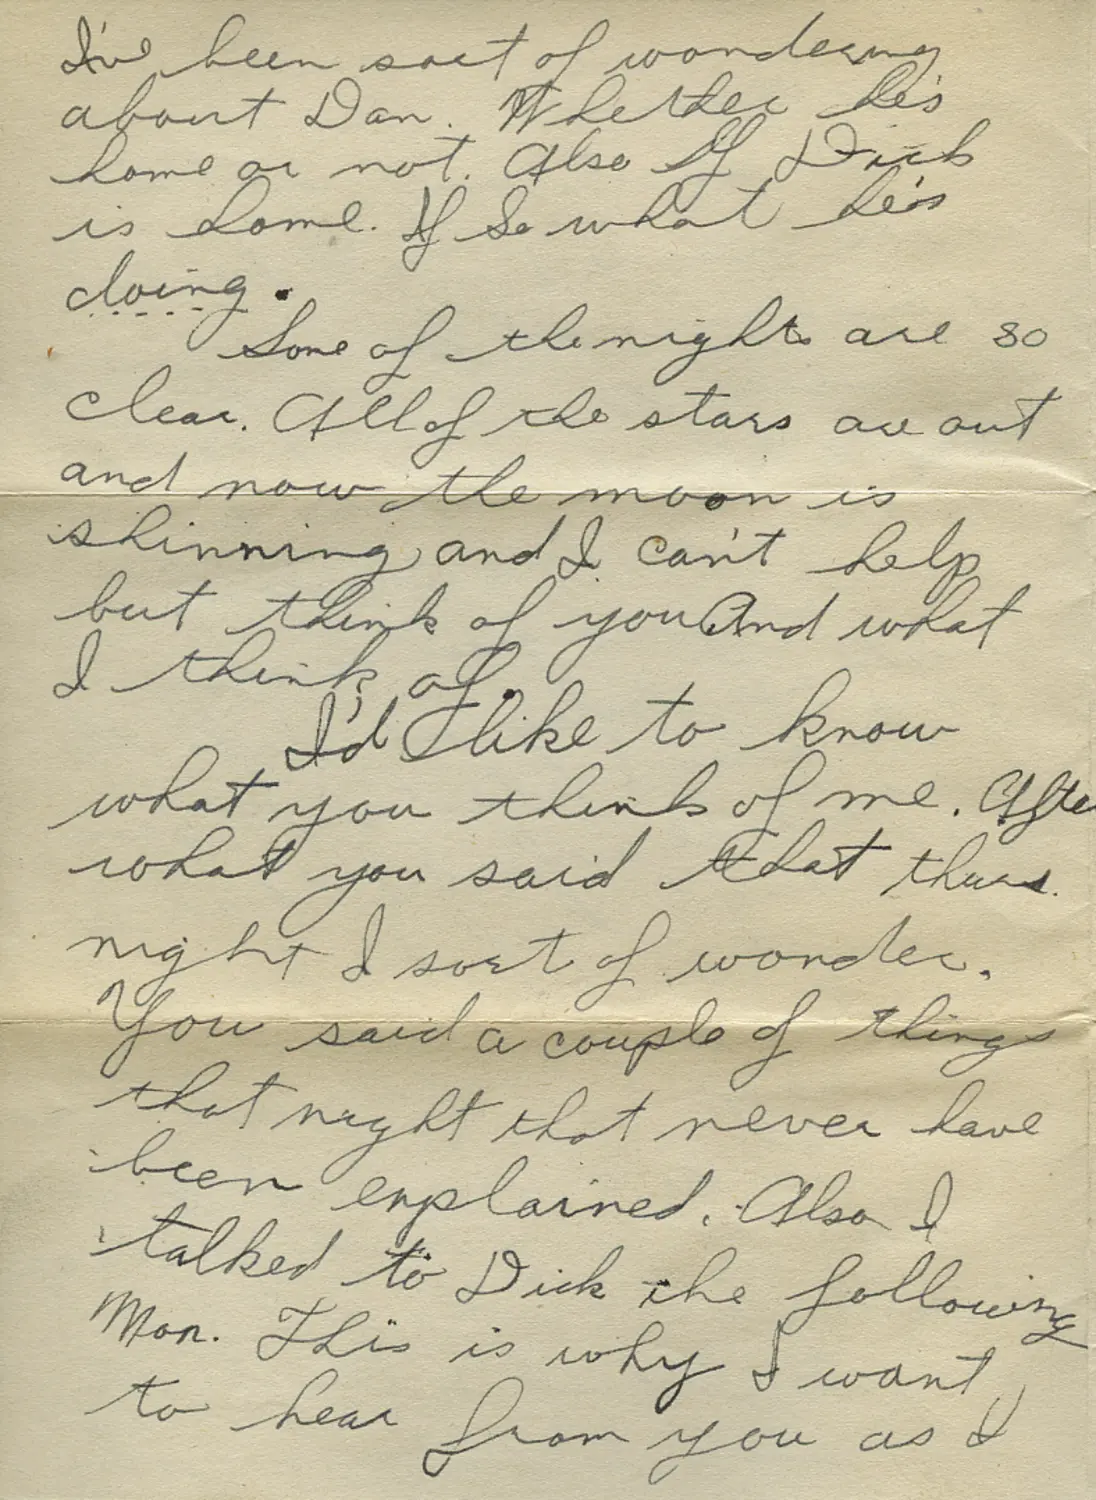 I've been sort of wondering
about Dan. Whether he's
home or not. Also If Dick
is home. If So what he's
doing.
Some of the nights are so
clear. All of the stars are out
and now the moon is
shinning and I can't help
but think of you And what
I think of.
I'd like to know
what you think of me. After
what you said that thurs.
night I sort of wonder.
You said a couple of things
that night that never have
been explained. Also I
talked to Dick the following
Mon. This is why I want
to hear from you as I